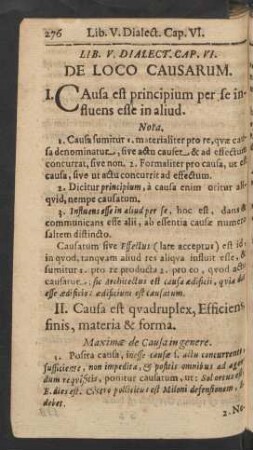 276 Lib. V. Dialect. Cap. VI.
LIB. V. DIALECT. CAP. VI.
DE LOCO CAUSARUM.
I. CAusa est principium per se in-
fluens esse in aliud.
Nota.
1. Causa sumitur 1. materialiter pro re, qvæ cau-
sa denominatur, sive actu causet, & ad effectum
concurrat, sive non. 2. Formaliter pro causa, ut est
causa, sive ut actu concurrit ad effectum.
2. Dicitur principium, à causa enim oritur ali-
qvid, nempe causatum.
3. Influens esse in aliud per se, hoc est, dans &
communicans esse alii, ab essentia causæ numero
saltem distincto.
Causatum sive Effectus (late acceptus) est id,
in qvod, tanqvam aliud res aliqva influit esse, &
sumitur 1. pro re producta 2. pro eo, qvod actu
causatur, sic Architectus est causa ædificii, qvia dat
esse ædificio: ædificium est causatum.
II. Causa est qvadruplex, Efficiens,
finis, materia & forma.
Maximæ de Causa in genere.
1. Posita causa, inesse causæ s. actu concurrente,
sufficiente, non impedita, & positis omnibus ad agen-
dum reqvisitis, ponitur causatum, ut: Sol ortus est,
E. dies est. pollicitus est Miloni defensionem,
debet.
2. Ne-